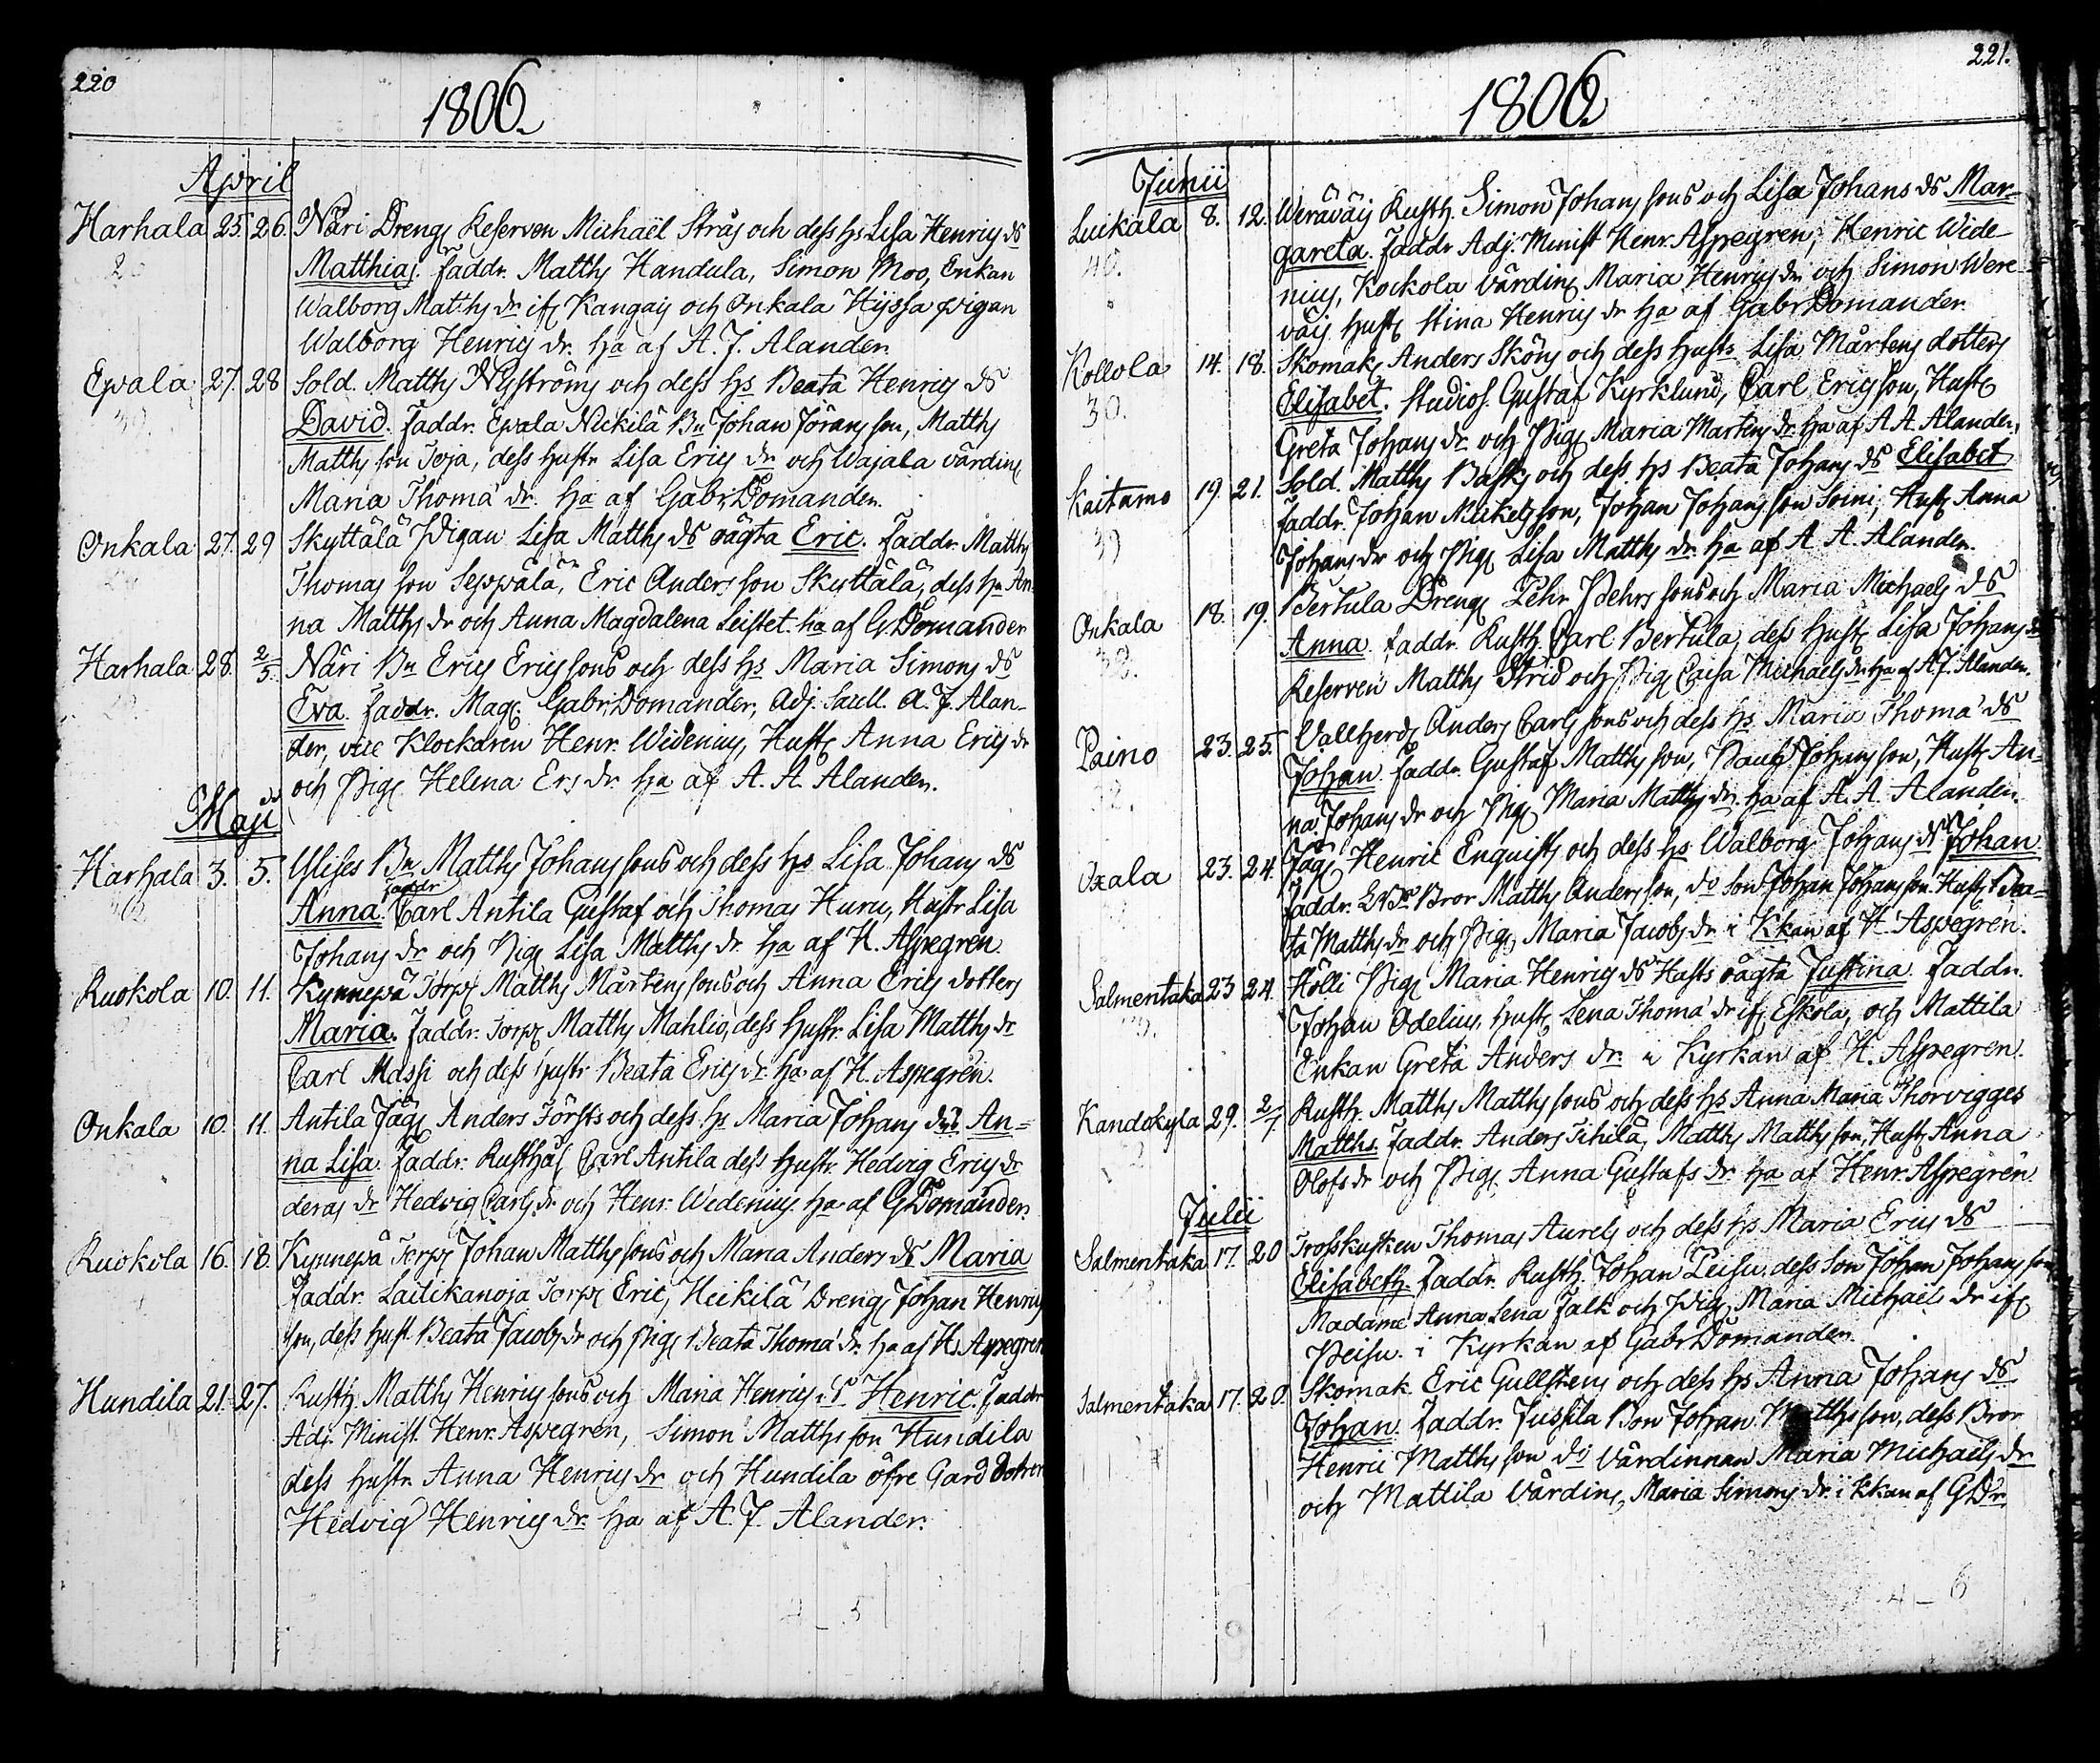 220
1806.
April
Harhala 25. 26. Näri Dreng Reserven Michaël Strås och dess hs Lisa Henrics ds
Matthias. Faddr. Matths Handula, Simon Moo, Enkan
Walborg Matths dr ifr Kangais och Onkala Hyssa pigan
Walborg Henrics dr. ha af A. J. Alander.
Epala 27. 28 Sold. Matths Nyströms och dess hs Beata Henrics ds
David. Faddr. Epala Nickilä Bn Johan Jöransson, Matths
Matths son Toja, dess hustr Lisa Erics dr och Wajala värdinn
Maria Thomæ dr. ha af Gabr. Domander.
Onkala 27. 29 Skyttälä Pigan Lisa Matths ds oägta Eric. Faddr. Matths
Thomas son Seppälä, Eric Anders son Skyttälä, dess ha An-
na Matths dr och Anna Magdalena Leistet. ha af G. Domander
Harhala 28. 2/5. Näri Bn Erics Erics sons och dess hs Maria Simons ds
Eva. Faddr. Mag. Gabr. Domander, Adj. Sacell. A. J. Alan-
der, vice Klockaren Henr. Widenius, Hustr Anna Erics dr
och Pig Helena Ers dr. ha af A. A. Alander.
Maji
Harhala 3. 5. Ylises Bn Matths Johans sons och dess hs Lisa Johans ds
Anna. Faddr Carl Antila Gustaf och Thomas Huru, Hustr Lisa
Johans dr och Pig Lisa Matths dr. ha af H. Aspegren.
Ruokola 10. 11. Kynnepä Torp Matths Mårtens sons och Anna Erics dotters
Maria. Faddr. Torp Matths Mahlio, dess Hustr. Lisa Matths dr
Carl Massi och dess hustr Beata Erics dr. ha af H. Aspegren.
Onkala 10. 11. Antila Jäg Anders Törfts och dess hs Maria Johans drs An-
na Lisa. Faddr. Rusthål Carl Antila dess Hustr. Hedvig Erics dr
deras dr Hedvig Carls dr och Henr. Widenius. ha af G Domander.
Ruokola 16. 18. Kynnepä Torp Johan Matths sons och Maria Anders ds Maria
Faddr. Lailikanoja Torp Eric, Heikilä Dreng Johan Henrics
son, dess hust. Beata Jacobs dr och Pig Beata Thomæ dr. ha af H. Aspegren
Hundila 21. 27. Rusth. Matths Henrics sons och Maria Henrics ds Henric. Faddr
Adj. Minist. Henr. Aspegren, Simon Matths son Hundila
dess hustr. Anna Henrics dr och Hundila öfre Gård Dotren
Hedvig Henrics dr. ha af A. J. Alander.
221.
1806.
Junii
Luikala 8. 12. Werävais Rusth. Simon Johans sons och Lisa Johans ds Mar-
40.
gareta. Faddr Adj. Minist Henr. Aspegren, Henric Wide-
nius, Kockola värdinn Maria Henrics dr och Simon Were
väis hust Stina Henrics dr ha af Gabr Domander.
Kollola 14. 18. Skomak Anders Sköns och dess hustrs Lisa Mårtens dotters
30.
Elisabet. Studios. Gustaf Kyrklund, Carl Ericsson, Hustr
Greta Johans dr och Pig Maria Mårtens dr. ha af A A. Alander.
Kaitamo 19. 21. Sold. Matths Basks och dess hs Beata Johans ds Elisabet
39
Faddr. Johan Mickels son, Johan Johans son Soini, Hustr Anna
Johans dr och Pig Lisa Matths dr. ha af A. A. Alander.
Onkala 18. 19. Bertula Dreng Pehr Pehrs sons och Maria Michaels ds
Anna. Faddr. Rusth. Carl Bertula, dess Hustr Lisa Johans dr
Reserven Matths Strid och Pig Caisa Michaels dr. ha af A. J. Alander.
Paino 23. 25. Vallherd Anders Carls sons och dess hs Maria Thomæ ds
Johan. Faddr. Gustaf Matths son, Johans son, Hustr An-
na Johans dr och Pig Maria Matths dr. ha af A. A. Alander.
Oxala 23. 24. Jäg Henric Enquists och dess hs Walborg Johans ds Johan
Faddr. Bror Matths Anders son, do son Johan Johans son Hustr Bea-
ta Matths dr och Pig Maria Jacobs dr. i Kkan af H. Aspegren.
Salmentaka 23 24. Hölli Pig Maria Henrics ds Hasts oägta Justina. Faddr.
Johan Odelius, Hustr Lena Thomæ dr ifr Eskola, och Mattila
Enkan Greta Anders dr. i Kyrkan af H. Aspegren.
Kandokyla 29. 2/7 Rusth. Matths Matths sons och dess hs Anna Maria Thorvigges
Matths. Faddr. Anders Tihilä, Matths Matths son, Hustr Anna
Olofs dr och Pig Anna Gustafs dr. ha af Henr. Aspegren
Julii
Salmentaka 17. 20 Trosskusken Thomas Aurels och dess hs Maria Erics ds
Elisabeth. Faddr. Rusth. Johan Peisu, dess Son Johan Johans son
Madame Anna Lena Falk och Pig Maria Michaels dr ifr
Peisu. i Kyrkan af Gabr Domander.
Salmentaka 17. 20. Skomak. Eric Gullstens och dess hs Anna Johans ds
Johan. Faddr. Jussila Bon Johan Matths son, dess Bror
Henric Matths son do Värdinnan Maria Michaels dr
och Mattila Värdinn, Maria Simons dr. i Kkan af G Dr.
4 - 6